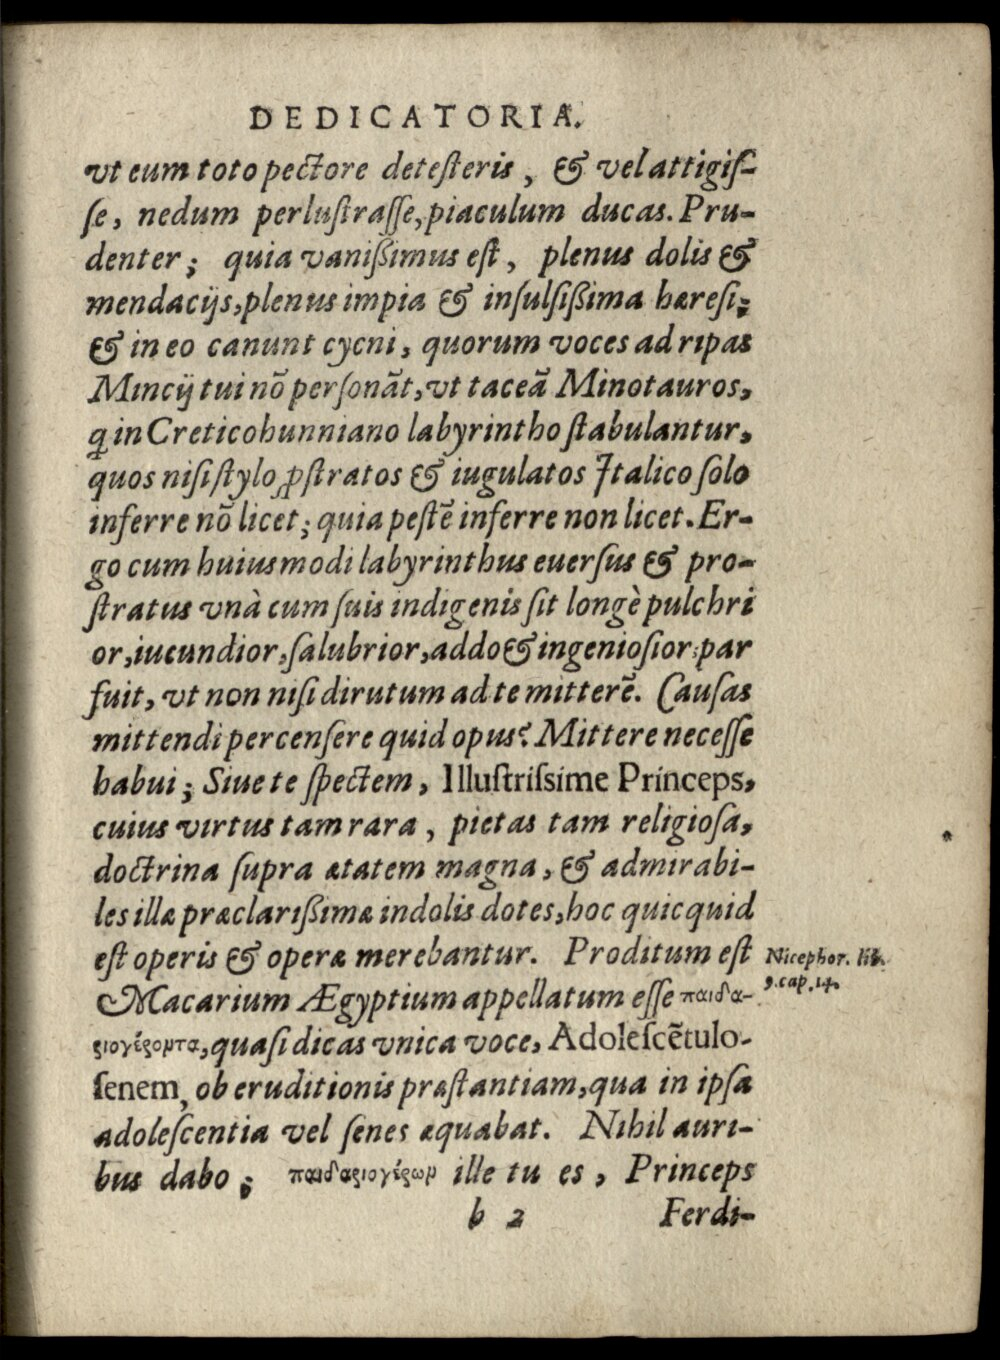 DEDICATORIA.
vt eum toto pectore detesteris, & vel attigiſ-
ſe, nedum perluſtraſſe, piaculum ducas. Pru-
denter; quia vanißimus eſt, plenus dolis &
mendacijs, plenus impia & inſulſißima hæreſi;
& in eo canunt cycni, quorum voces ad ripas
Mincij tui nõ perſonãt, vt taceã Minotauros,
q̃ in Creticohunniano labyrintho ſtabulantur,
quos niſi ſtylo ꝓſtratos & iugulatos Italico ſolo
inferre nõ licet; quia peſtẽ inferre non licet. Er-
go cum huiusmodi labyrinthus euerſus & pro-
ſtratus vnà cum ſuis indigenis ſit longè pulchri
or, iucundior, ſalubrior, addo & ingenioſior; par
fuit, vt non niſi dirutum ad te mitterẽ. Cauſas
mittendi percenſere quid opus? Mittere neceſſe
habui; Siue te ſpectem, Illuſtriſsime Princeps,
cuius virtus tam rara, pietas tam religioſa,
doctrina ſupra ætatem magna, & admirabi-
les illæ præclarißimæ indolis dotes, hoc quicquid
eſt operis & operæ merebantur. Proditum eſt
Nicephor. lib.
9. cap. 14.
Macarium Ægyptium appellatum eſſe παιδα-
ριογέροντα, quaſi dicas vnica voce, Adoleſcẽtulo-
ſenem, ob eruditionis præſtantiam, qua in ipſa
adoleſcentia vel ſenes æquabat. Nihil auri-
bus dabo; παιδαριογέρων ille tu es, Princeps
b 2 Ferdi-